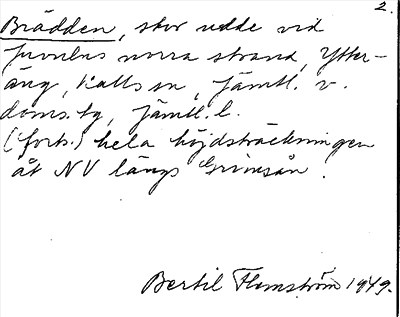 2.
Brädden, stor udde vid
Juvulns norra strand, Ytter-
äng, Kalls sn, Jämtl. v.
doms.ty, Jämtl. l.
(forts.) hela höjdsträckningen
åt NV längs Grimsån.
Bertil Flemström 1949.